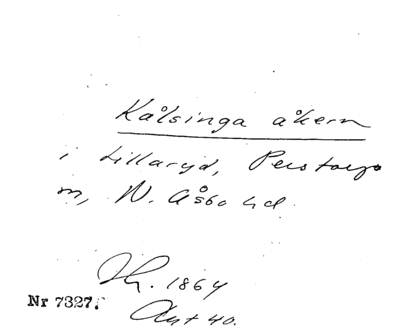 Kålsinga åkern
i Lillaryd, Perstorp
sn, N. Åsbo hd.
Th. 1864
Nr 7327.
Ant 40.